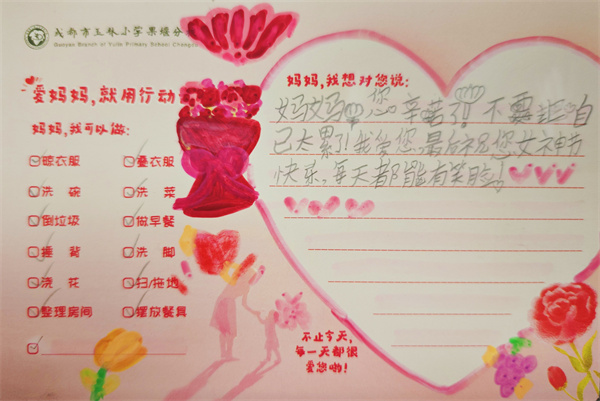 成都市玉林小学果堰分
Guoyan Branch of Yulin Primary School Chengdu
爱妈妈，就用行动
妈妈，我可以做：
晾衣服 叠衣服
洗碗 洗菜
倒垃圾 做早餐
捶背 洗脚
浇花 扫/拖地
整理房间 摆放餐具
妈妈，我想对您说：
妈妈您辛苦了!不要让自
已太累了!我爱您,最后祝您女神节
快乐,每天都能有笑脸!
不止今天，
每一天都很
爱您哟！